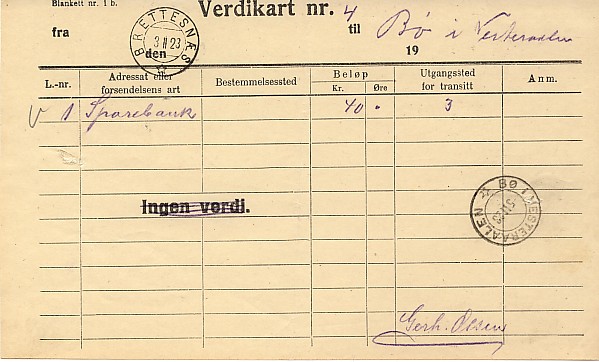 Blankett nr. 1 b.
Verdikart nr. 4
fra BRETTESNES 3 II 23 til Bø i Vesteraalen
den 19
L.-nr. Adressat eller forsendelsens art Bestemmelsessted Beløp Kr. Øre Utgangssted for transitt Anm.
V 1 Sparebank 40 - 3
Ingen verdi.
BØ I VESTERAALEN
Gerh. Olsen